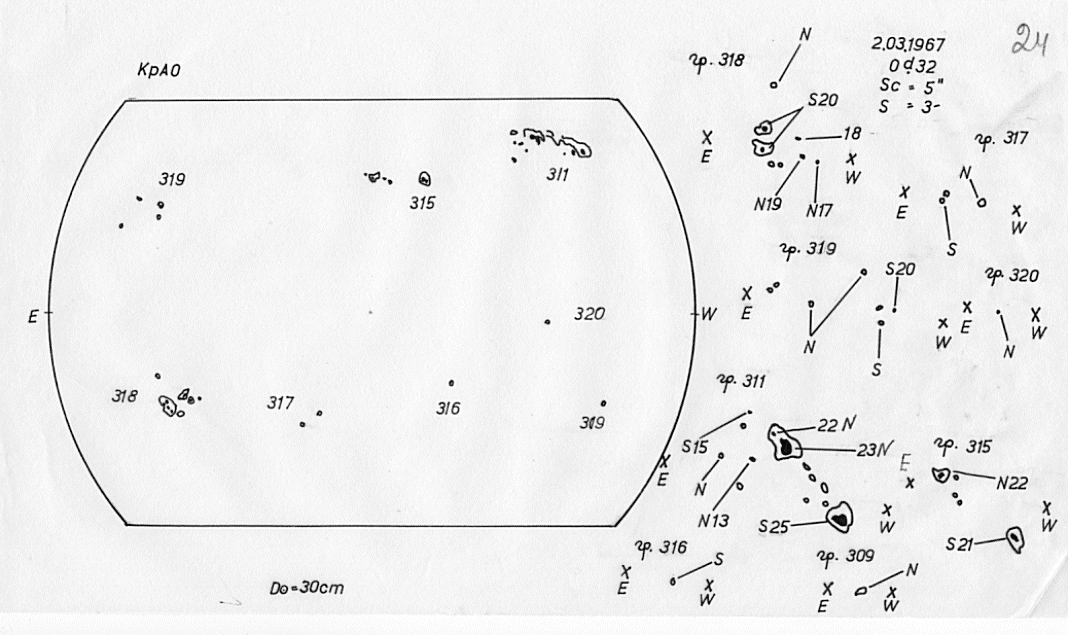 24
КрАО
2,03,1967
0d32
Sc = 5"
S = 3-
319
315
311
E
W
320
318
317
316
319
D⊙=30cm
гр. 318
N
S20
18
X
E
X
W
N19
N17
гр. 317
N
X
E
X
W
S
гр. 319
S20
X
E
N
S
X
W
гр. 320
X
E
X
W
N
гр. 311
22 N
23N
S15
X
E
N
N13
S25
X
W
гр. 315
E
X
N22
X
W
S21
гр. 316
S
X
E
X
W
гр. 309
N
X
E
X
W